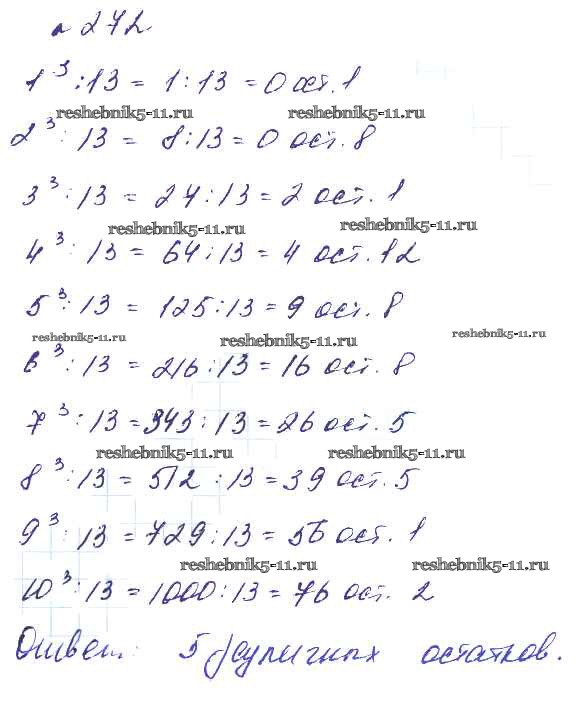 n 272.
1³ : 13 = 1 : 13 = 0 ост. 1
reshebnik5-11.ru reshebnik5-11.ru
2³ : 13 = 8 : 13 = 0 ост. 8
3³ : 13 = 27 : 13 = 2 ост. 1
reshebnik5-11.ru reshebnik5-11.ru
4³ : 13 = 64 : 13 = 4 ост. 12
5³ : 13 = 125 : 13 = 9 ост. 8
reshebnik5-11.ru reshebnik5-11.ru reshebnik5-11.ru
6³ : 13 = 216 : 13 = 16 ост. 8
7³ : 13 = 343 : 13 = 26 ост. 5
reshebnik5-11.ru reshebnik5-11.ru
8³ : 13 = 512 : 13 = 39 ост. 5
9³ : 13 = 729 : 13 = 56 ост. 1
reshebnik5-11.ru reshebnik5-11.ru
10³ : 13 = 1000 : 13 = 76 ост. 2
Ответ: 5 различных остатков.